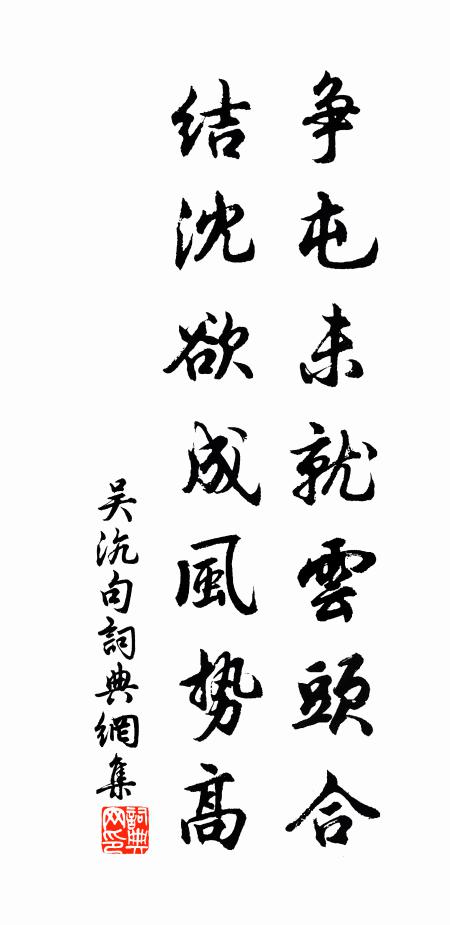 争屯未就雲頭合
结沈欲成風势高
吴沆句詞典網集
詞典网印